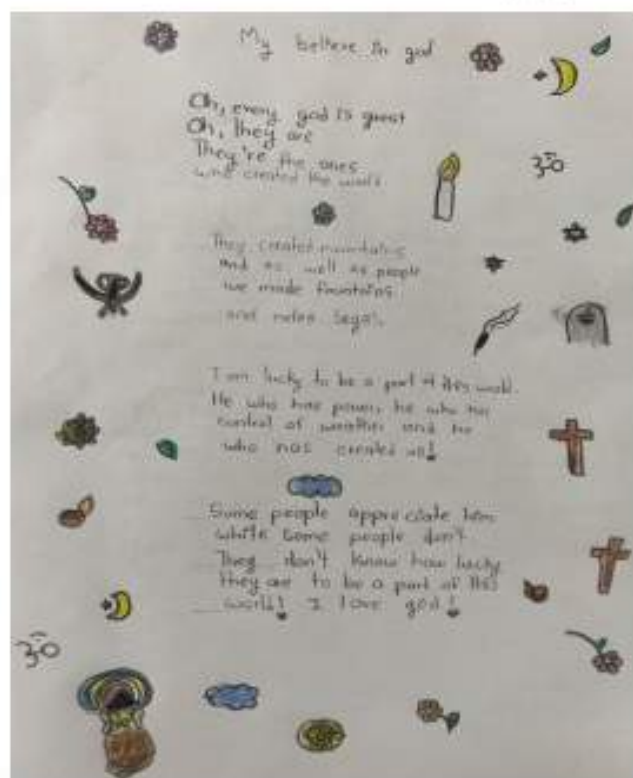 My believe in god
Oh, every god is great
Oh, they are
They're the ones
who created the world
They created mountains
And as well as people
we made fountains
and rules legal.
I am lucky to be a part of this world.
He who has power, he who has
control of weather and he
who has created us!
Some people appreciate him
while some people don't
They don't know how lucky
they are to be a part of this
world! I love god!
ॐ
ॐ